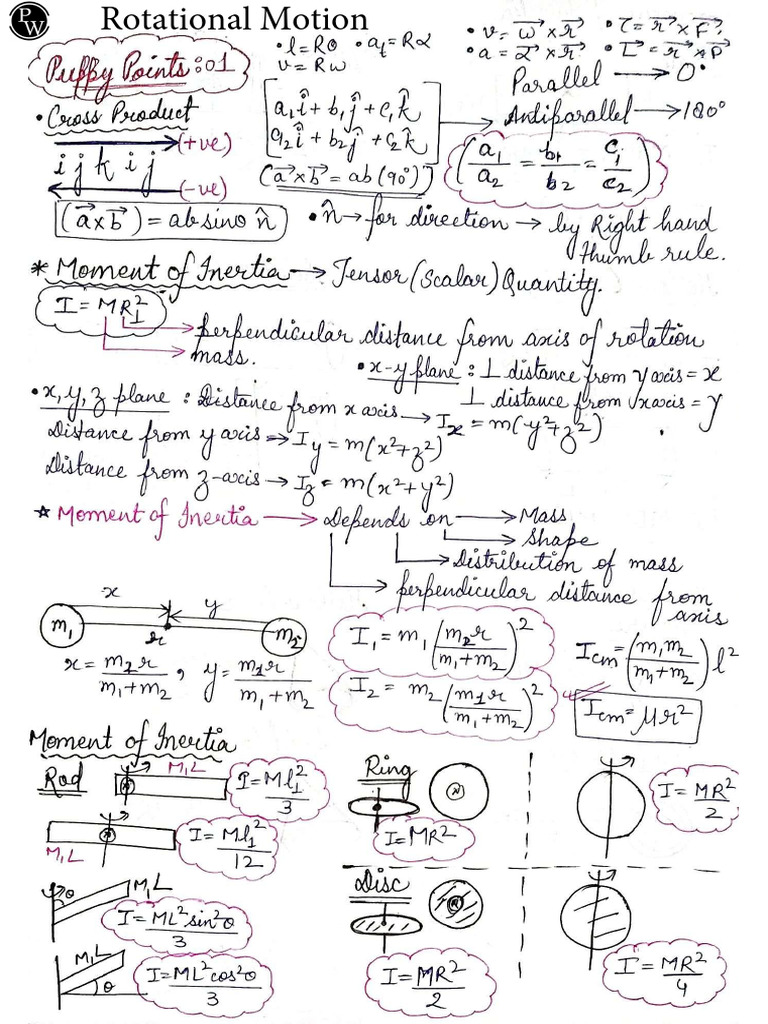 PW
Rotational Motion
Puppy Points:01
• l = Rθ • a_t = Rα
v = Rω
• v = ω⃗ × r⃗ • τ = r⃗ × F⃗
• a = α⃗ × r⃗ • L⃗ = r⃗ × P⃗
• Cross Product
(+ve)
i j k i j
(-ve)
[a₁î + b₁ĵ + c₁k̂
a₂î + b₂ĵ + c₂k̂]
(a⃗×b⃗ = ab (90°))
Parallel → 0°
Antiparallel → 180°
(a₁/a₂ = b₁/b₂ = c₁/c₂)
(a⃗×b⃗) = ab sinθ n̂
• n̂ → for direction → by Right hand
thumb rule.
* Moment of Inertia → Tensor (Scalar) Quantity.
I = MR⊥²
perpendicular distance from axis of rotation
mass.
• x-y plane : ⊥ distance from y axis = x
⊥ distance from x axis = y
• x, y, z plane : Distance from x axis → Iₓ = m(y²+z²)
Distance from y axis → I_y = m(x²+z²)
Distance from z-axis → I_z = m(x²+y²)
* Moment of Inertia → Depends on → Mass
Shape
Distribution of mass
perpendicular distance from
axis
x y
m₁ r m₂
x = m₂r/(m₁+m₂) , y = m₁r/(m₁+m₂)
I₁ = m₁(m₂r/(m₁+m₂))²
I₂ = m₂(m₁r/(m₁+m₂))²
Icm = (m₁m₂/(m₁+m₂)) l²
Icm = μr²
Moment of Inertia
Rod
M,L
I = Ml⊥²/3
M,L
I = Ml⊥²/12
θ M,L
I = ML²sin²θ/3
M,L
θ
I = ML²cos²θ/3
Ring
I = MR²
I = MR²/2
Disc
I = MR²/2
I = MR²/4